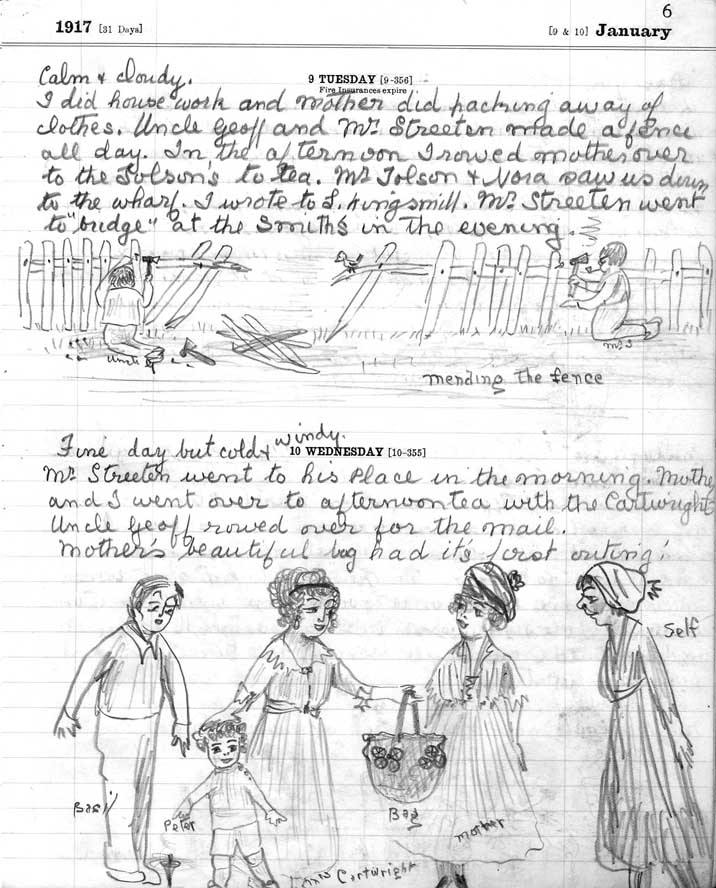 6
1917 [31 Days] [9 & 10] January
Calm & cloudy.
9 TUESDAY [9-356]
Fire Insurances expire
I did house work and mother did packing away of
clothes. Uncle Geoff and Mr. Streeten made a fence
all day. In the afternoon I rowed mother over
to the Tolsons to tea. Mr Tolson & Nora saw us down
to the wharf. I wrote to L. Kingsmill. Mr. Streeten went
to "bridge" at the Smith's in the evening.
Uncle G
Mr S
mending the fence
Fine day but cold & windy.
10 WEDNESDAY [10-355]
Mr. Streeten went to his place in the morning. Mothe
and I went over to afternoon tea with the Cartwright
Uncle Geoff rowed over for the mail.
Mother's beautiful bag had it's first outing!
Self
Basil
Peter
Bag
mother
Mrs Cartwright